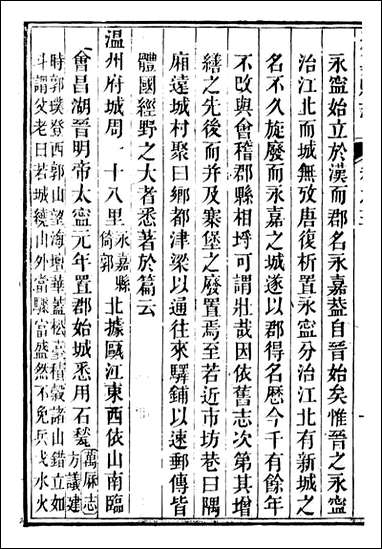 永寍始立於漢而郡名永嘉葢自晉始矣惟晉之永寍
治江北而城無攷唐復析置永寍分治江北有新城之
名不久旋廢而永嘉之城遂以郡得名歷今千有餘年
不改與會稽郡縣相埒可謂壯哉因依舊志次第其增
繕之先後而并及寨堡之廢置焉至若近市坊巷曰隅
廂遠城村聚曰鄉都津梁以通往來驛鋪以速郵傳皆
體國經野之大者悉著於篇云
温州府城周一十八里永嘉縣倚郭北據甌江東西依山南臨
會昌湖晉明帝太寍元年置郡始城悉用石甃萬厤志方議建
時郭璞登西郭山望海壇華蓋松臺積穀諸山錯立如
斗謂父老曰若城繞山外當驟富盛然不免兵戈水火